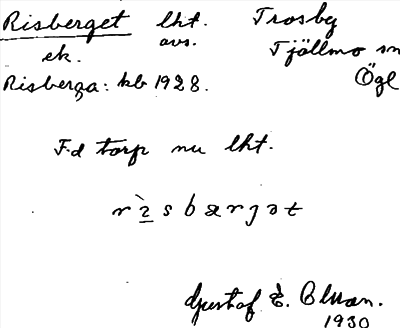 Risberget lht. Trosby
avs. Tjällmo sn
ek. Ögl
Risberga: kb 1928.
F.d torp nu lht.
Gustaf E.
1930